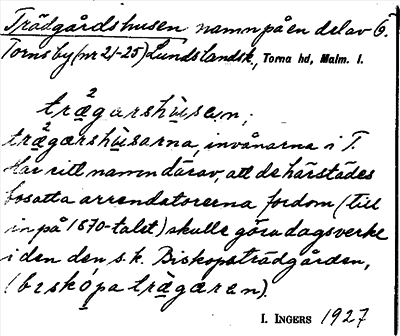 Trädgårdshusen namn på en del av Ö.
Tornsby (nr 21-25) Lundslandsk., Torna hd, Malm. l.
trägarshusen;
trägarshusarna, invånarna i T.
Har sitt namn därav, att de härstädes
bosatta arrendatorerna fordom (till
in på 1870-talet) skulle göra dagsverke
i den den s.k. Biskopsträdgården,
(beskópa trägaren).
I. INGERS 1927